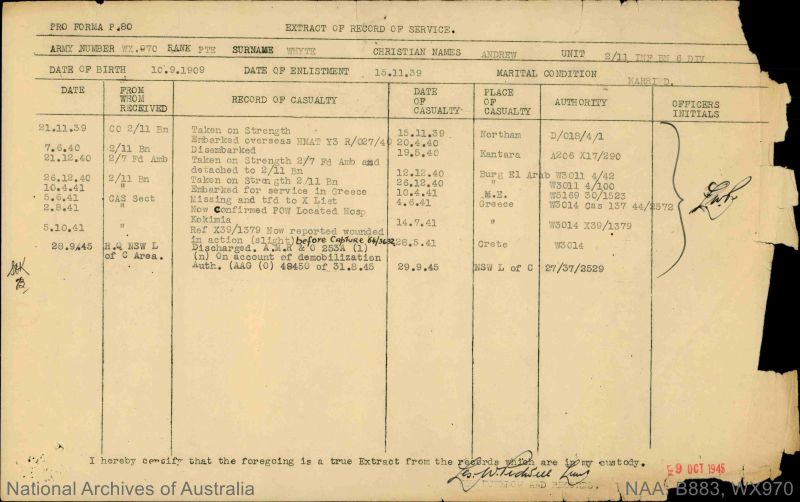 PRO FORMA P.80 EXTRACT OF RECORD OF SERVICE.
ARMY NUMBER WX.970 RANK PTE SURNAME WHYTE CHRISTIAN NAMES ANDREW UNIT 2/11 INF BN 6 DIV
DATE OF BIRTH 10.9.1909 DATE OF ENLISTMENT 15.11.39 MARITAL CONDITION MARRIED.
DATE FROM WHOM RECEIVED RECORD OF CASUALTY DATE OF CASUALTY PLACE OF CASUALTY AUTHORITY OFFICERS INITIALS
21.11.39 CO 2/11 Bn Taken on Strength 15.11.39 Northam D/018/4/1
Embarked overseas HMAT Y3 R/027/40 20.4.40
7.6.40 2/11 Bn Disembarked 19.5.40 Kantara A206 X17/290
21.12.40 2/7 Fd Amb Taken on Strength 2/7 Fd Amb and
detached to 2/11 Bn 12.12.40 Burg El Arab W3011 4/42
26.12.40 2/11 Bn Taken on Strength 2/11 Bn 26.12.40 " W3011 4/100
10.4.41 " Embarked for service in Greece 10.4.41 M.E. W5169 30/1523
5.6.41 CAS Sect Missing and tfd to X List 4.6.41 Greece W3014 Cas 137 44/2572
2.8.41 " Now Confirmed POW Located Hosp
Kokimia 14.7.41 " W3014 X39/1379
5.10.41 " Ref X39/1379 Now reported wounded
in action (slight) before capture 28.5.41 Crete W3014
28.9.45 H.Q NSW L of C Area. Discharged. A.M.R & O 253A (1)
(n) On account of demobilization
Auth. (AAG (O) 48450 of 31.8.45 29.9.45 NSW L of C 27/37/2529
I hereby certify that the foregoing is a true Extract from the records which are in my custody.
9 OCT 1945
National Archives of Australia NAA: B883, WX970